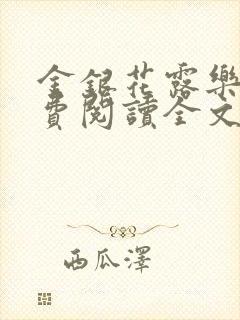 金銀花露樂
費閱讀全文
西瓜澤